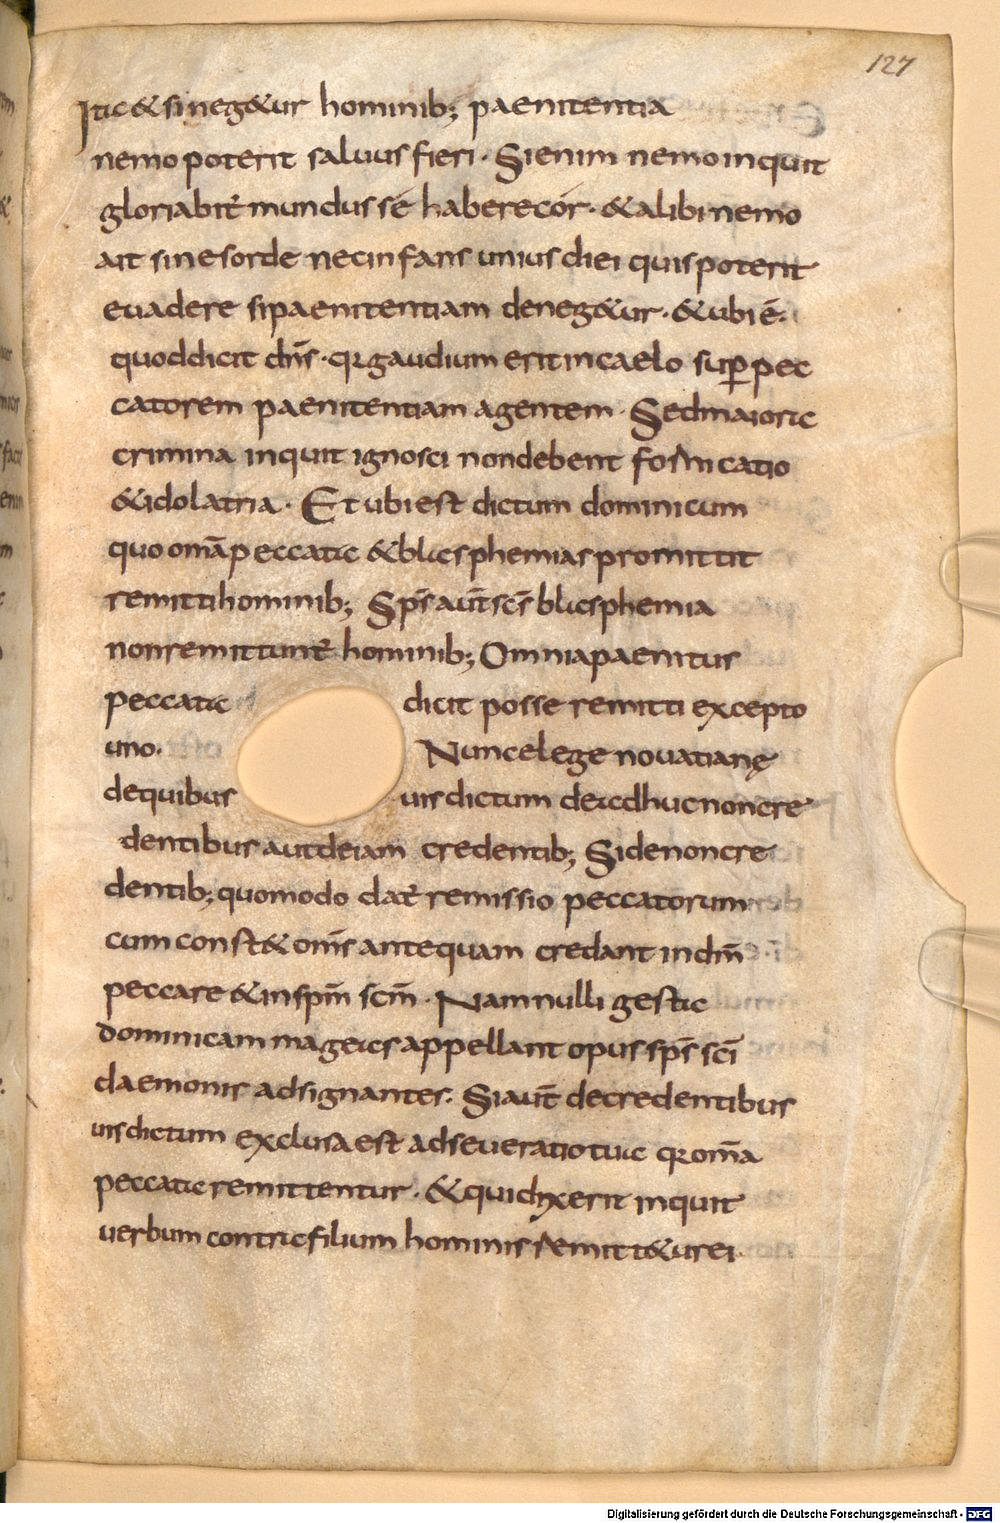 127
Ita & si neg&ur hominib; paenitentia
nemo poterit saluus fieri · Si enim nemo inquit
gloriabit̄ mundus sé habere cór · & alibi nemo
ait sine sorde nec infans unius diei quis poterit
euadere si paenitentiam deneg&ur · & ubi ē ·
quod dicit dn̄s · qr gaudium erit in caelo sup̄ pec
catorem paenitentiam agentem · Sed maiora
crimina inquit ignosci non debent fornicatio
& idolatria · Et ubi est dictum dominicum
quo om̄a peccata & blasphemias promittit
remitti hominib; Sp̄s aut̄ sc̄s blasphemia
non remittunt̄ hominib; Omnia paenitus
peccata dicit posse remitti excepto
uno · Nunc elege nouatiane
de quibus uis dictum de adhuc non cre
dentibus aut de iam credentib; Si de non cre
dentib; quomodo dat̄ remissio peccatorum
cum const& om̄s antequam credant in dm̄
peccare & in spm̄ scm̄ · Nam nulli gesta
dominicam mageias appellant opus sp̄s sc̄i
daemonis adsignantes · Si aut̄ de credentibus
uis dictum exclusa est adseueratio tua qr om̄a
peccata remittentur · & qui dixerit inquit
uerbum contra filium hominis remitt&ur ei
Digitalisierung gefördert durch die Deutsche Forschungsgemeinschaft - DFG